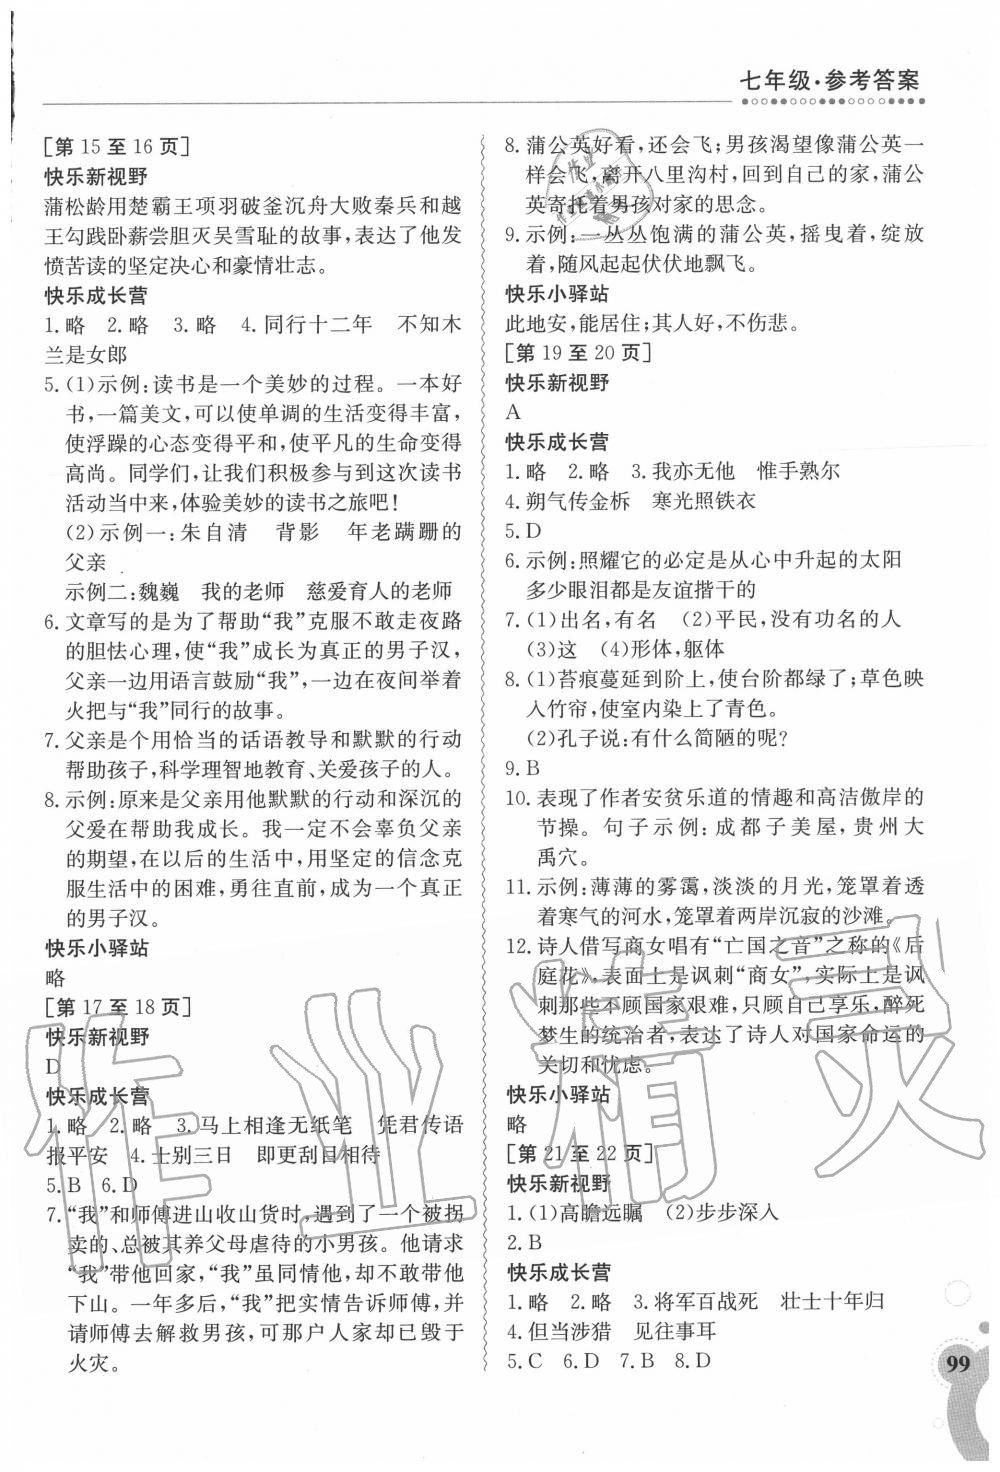 七年级·参考答案
[第 15 至 16 页]
快乐新视野
蒲松龄用楚霸王项羽破釜沉舟大败秦兵和越
王勾践卧薪尝胆灭吴雪耻的故事,表达了他发
愤苦读的坚定决心和豪情壮志。
快乐成长营
1. 略 2. 略 3. 略 4. 同行十二年 不知木
兰是女郎
5. (1)示例:读书是一个美妙的过程。一本好
书,一篇美文,可以使单调的生活变得丰富,
使浮躁的心态变得平和,使平凡的生命变得
高尚。同学们,让我们积极参与到这次读书
活动当中来,体验美妙的读书之旅吧!
(2)示例一:朱自清 背影 年老蹒跚的
父亲
示例二:魏巍 我的老师 慈爱育人的老师
6. 文章写的是为了帮助“我”克服不敢走夜路
的胆怯心理,使“我”成长为真正的男子汉,
父亲一边用语言鼓励“我”,一边在夜间举着
火把与“我”同行的故事。
7. 父亲是个用恰当的话语教导和默默的行动
帮助孩子,科学理智地教育、关爱孩子的人。
8. 示例:原来是父亲用他默默的行动和深沉的
父爱在帮助我成长。我一定不会辜负父亲
的期望,在以后的生活中,用坚定的信念克
服生活中的困难,勇往直前,成为一个真正
的男子汉。
快乐小驿站
略
[第 17 至 18 页]
快乐新视野
D
快乐成长营
1. 略 2. 略 3. 马上相逢无纸笔 凭君传语
报平安 4. 士别三日 即更刮目相待
5. B 6. D
7. “我”和师傅进山收山货时,遇到了一个被拐
卖的、总被其养父母虐待的小男孩。他请求
“我”带他回家,“我”虽同情他,却不敢带他
下山。一年多后,“我”把实情告诉师傅,并
请师傅去解救男孩,可那户人家却已毁于
火灾。
8. 蒲公英好看,还会飞;男孩渴望像蒲公英一
样会飞,离开八里沟村,回到自己的家,蒲公
英寄托着男孩对家的思念。
9. 示例:一丛丛饱满的蒲公英,摇曳着,绽放
着,随风起起伏伏地飘飞。
快乐小驿站
此地安,能居住;其人好,不伤悲。
[第 19 至 20 页]
快乐新视野
A
快乐成长营
1. 略 2. 略 3. 我亦无他 惟手熟尔
4. 朔气传金柝 寒光照铁衣
5. D
6. 示例:照耀它的必定是从心中升起的太阳
多少眼泪都是友谊揩干的
7. (1)出名,有名 (2)平民,没有功名的人
(3)这 (4)形体,躯体
8. (1)苔痕蔓延到阶上,使台阶都绿了;草色映
入竹帘,使室内染上了青色。
(2)孔子说:有什么简陋的呢?
9. B
10. 表现了作者安贫乐道的情趣和高洁傲岸的
节操。句子示例:成都子美屋,贵州大
禹穴。
11. 示例:薄薄的雾霭,淡淡的月光,笼罩着透
着寒气的河水,笼罩着两岸沉寂的沙滩。
12. 诗人借写商女唱有“亡国之音”之称的《后
庭花》,表面上是讽刺“商女”,实际上是讽
刺那些不顾国家艰难,只顾自己享乐,醉死
梦生的统治者,表达了诗人对国家命运的
关切和忧虑。
快乐小驿站
略
[第 21 至 22 页]
快乐新视野
1. (1)高瞻远瞩 (2)步步深入
2. B
快乐成长营
1. 略 2. 略 3. 将军百战死 壮士十年归
4. 但当涉猎 见往事耳
5. C 6. D 7. B 8. D
99
作业精灵